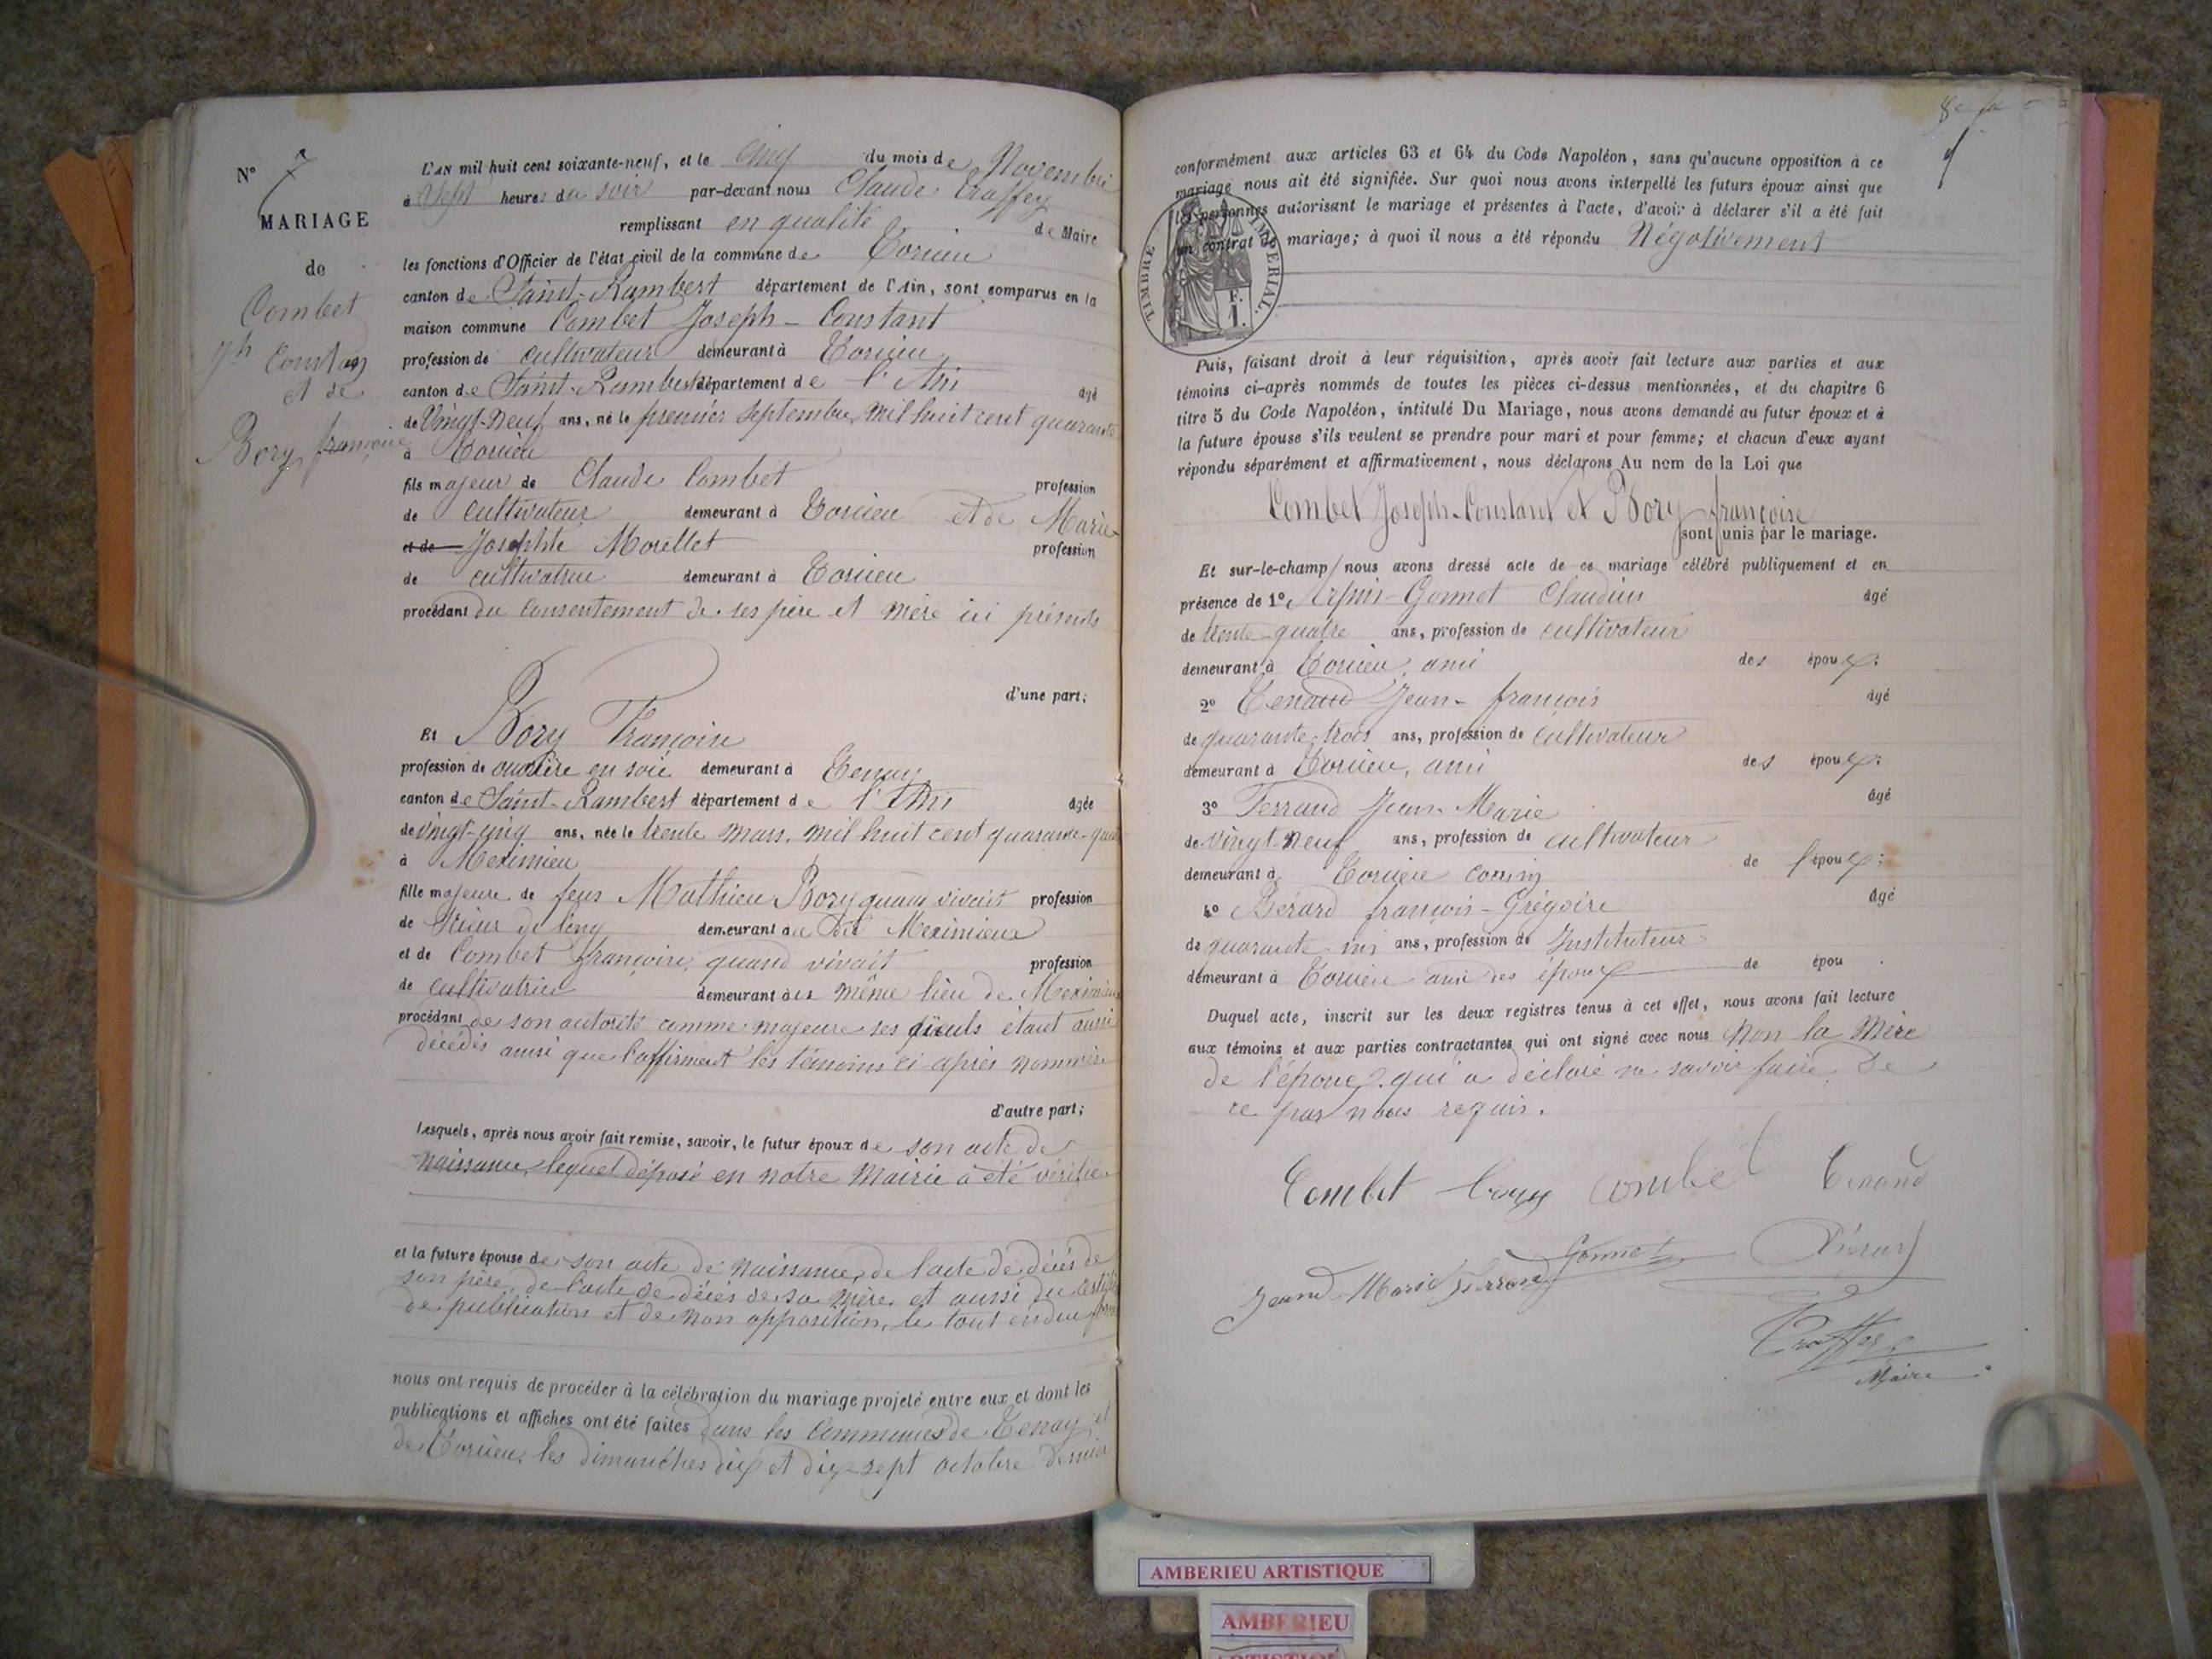 N° 7
MARIAGE
de
Combet
Jh Constan
et de
Bory françoise
L'AN mil huit cent soixante-neuf, et le cinq du mois de Novembre
à sept heures du soir par-devant nous Claude Traffey
remplissant en qualité de Maire
les fonctions d'Officier de l'état civil de la commune de Torcieu
canton de Saint-Rambert département de l'Ain, sont comparus en la
maison commune Combet Joseph-Constant
profession de cultivateur demeurant à Torcieu
canton de Saint-Rambert département de l'Ain âgé
de Vingt-neuf ans, né le premier septembre mil huit cent quarante
à Torcieu
fils majeur de Claude Combet profession
de cultivateur demeurant à Torcieu et de Marie
et de Josephte Morellet profession
de cultivatrice demeurant à Torcieu
procédant du consentement de ses père et mère ici présents
d'une part;
Et Bory Françoise
profession de ouvrière en soie demeurant à Tenay
canton de Saint-Rambert département de l'Ain âgée
de vingt-cinq ans, née le trente mars mil huit cent quarante-quatre
à Meximieu
fille majeure de feus Mathieu Bory quand vivait profession
de Scieur de long demeurant au dit Meximieux
et de Combet françoise, quand vivait profession
de cultivatrice demeurant au même lieu de Meximieux
procédant de son autorité comme majeure ses aïeuls étant aussi
décédés ainsi que l'affirment les témoins ci-après nommés
d'autre part;
Lesquels, après nous avoir fait remise, savoir, le futur époux de son acte de
naissance, lequel déposé en notre Mairie a été vérifié
et la future épouse de son acte de naissance, de l'acte de décès de
son père, de l'acte de décès de sa mère et aussi du certificat
de publication et de non opposition, le tout en due forme
nous ont requis de procéder à la célébration du mariage projeté entre eux et dont les
publications et affiches ont été faites dans les communes de Tenay et
de Torcieu, les dimanches dix et dix-sept octobre dernier
conformément aux articles 63 et 64 du Code Napoléon, sans qu'aucune opposition à ce
mariage nous ait été signifiée. Sur quoi nous avons interpellé les futurs époux ainsi que
les personnes autorisant le mariage et présentes à l'acte, d'avoir à déclarer s'il a été fait
un contrat de mariage; à quoi il nous a été répondu Négativement
TIMBRE IMPERIAL.
1 F.
Puis, faisant droit à leur réquisition, après avoir fait lecture aux parties et aux
témoins ci-après nommés de toutes les pièces ci-dessus mentionnées, et du chapitre 6
titre 5 du Code Napoléon, intitulé Du Mariage, nous avons demandé au futur époux et à
la future épouse s'ils veulent se prendre pour mari et pour femme; et chacun d'eux ayant
répondu séparément et affirmativement, nous déclarons Au nom de la Loi que
Combet Joseph-Constant et Bory françoise
sont unis par le mariage.
Et sur-le-champ nous avons dressé acte de ce mariage célébré publiquement et en
présence de 1° Arpin-Gonnet Claudius âgé
de trente-quatre ans, profession de cultivateur
demeurant à Torcieu, ami des époux;
2° Tenand Jean-françois âgé
de quarante-trois ans, profession de cultivateur
demeurant à Torcieu, ami des époux;
3° Ferrand Jean-Marie âgé
de vingt-neuf ans, profession de cultivateur
demeurant à Torcieu cousin de l'époux;
4° Bérard françois-Grégoire âgé
de quarante-six ans, profession de Instituteur
demeurant à Torcieu ami des époux de épou .
Duquel acte, inscrit sur les deux registres tenus à cet effet, nous avons fait lecture
aux témoins et aux parties contractantes qui ont signé avec nous non la Mère
de l'époux qui a déclaré ne savoir faire de
ce par nous requis.
Combet bory combet Tenand
Jeand Marie Ferrand Gonnet Bérard
Traffey
Maire
AMBERIEU ARTISTIQUE
AMBERIEU
ARTISTIQUE